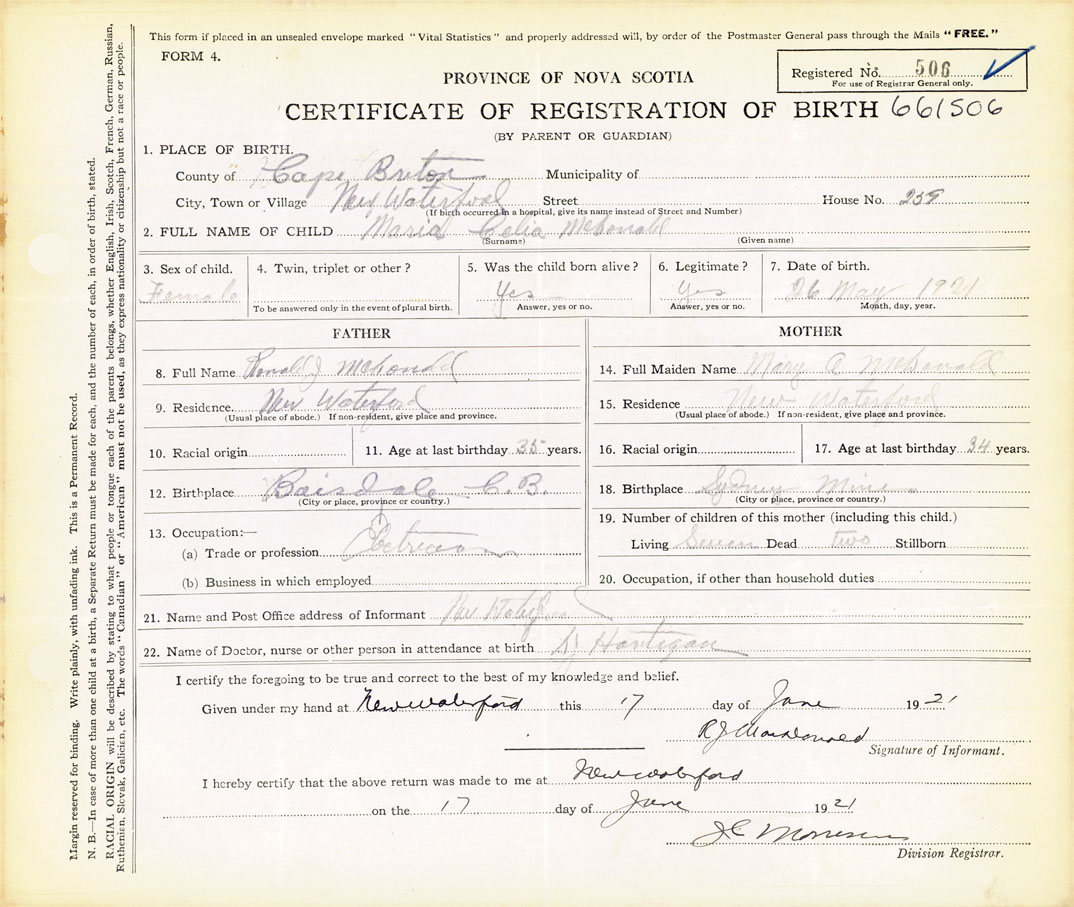 This form if placed in an unsealed envelope marked "Vital Statistics" and properly addressed will, by order of the Postmaster General pass through the Mails "FREE."
FORM 4.
Registered No. 506
For use of Registrar General only.
PROVINCE OF NOVA SCOTIA
CERTIFICATE OF REGISTRATION OF BIRTH 661506
(BY PARENT OR GUARDIAN)
1. PLACE OF BIRTH.
County of Cape Breton Municipality of
City, Town or Village New Waterford Street House No. 259
(If birth occurred in a hospital, give its name instead of Street and Number)
2. FULL NAME OF CHILD Maria Celia McDonald
(Surname) (Given name)
3. Sex of child. Female
4. Twin, triplet or other?
To be answered only in the event of plural birth.
5. Was the child born alive? Yes
Answer, yes or no.
6. Legitimate? Yes
Answer, yes or no.
7. Date of birth. 26 May 1921
Month, day, year.
FATHER
8. Full Name Ronald J McDonald
9. Residence. New Waterford
(Usual place of abode.) If non-resident, give place and province.
10. Racial origin 11. Age at last birthday 35 years.
12. Birthplace Boisdale C.B.
(City or place, province or country.)
13. Occupation:—
(a) Trade or profession
(b) Business in which employed
MOTHER
14. Full Maiden Name Mary A McDonald
15. Residence New Waterford
(Usual place of abode.) If non-resident, give place and province.
16. Racial origin 17. Age at last birthday 34 years.
18. Birthplace Sydney Mines
(City or place, province or country.)
19. Number of children of this mother (including this child.)
Living Seven Dead two Stillborn
20. Occupation, if other than household duties
21. Name and Post Office address of Informant New Waterford
22. Name of Doctor, nurse or other person in attendance at birth Hartigan
I certify the foregoing to be true and correct to the best of my knowledge and belief.
Given under my hand at New Waterford this 17 day of June 1921
R J Macdonald
Signature of Informant.
I hereby certify that the above return was made to me at New Waterford
on the 17 day of June 1921
Division Registrar.
Margin reserved for binding. Write plainly, with unfading ink. This is a Permanent Record.
N. B.—In case of more than one child at a birth, a Separate Return must be made for each, and the number of each, in order of birth, stated.
RACIAL ORIGIN will be described by stating to what people or tongue each of the parents belongs, whether English, Irish, Scotch, French, German, Russian,
Ruthenian, Slovak, Galician, etc. The words "Canadian" or "American" must not be used, as they express nationality or citizenship but not a race or people.